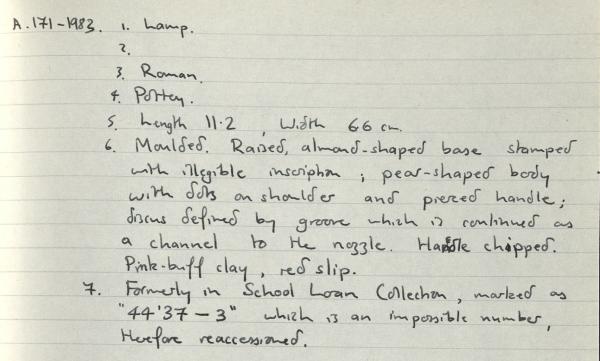 A.171-1983. 1. Lamp.
2.
3. Roman.
4. Pottery.
5. Length 11.2, Width 6.6 cm.
6. Moulded. Raised, almond-shaped base stamped
with illegible inscription; pear-shaped body
with dots on shoulder and pierced handle;
discus defined by groove which is continued as
a channel to the nozzle. Handle chipped.
Pink-buff clay, red slip.
7. Formerly in School Loan Collection, marked as
"44'37-3" which is an impossible number,
therefore reaccessioned.